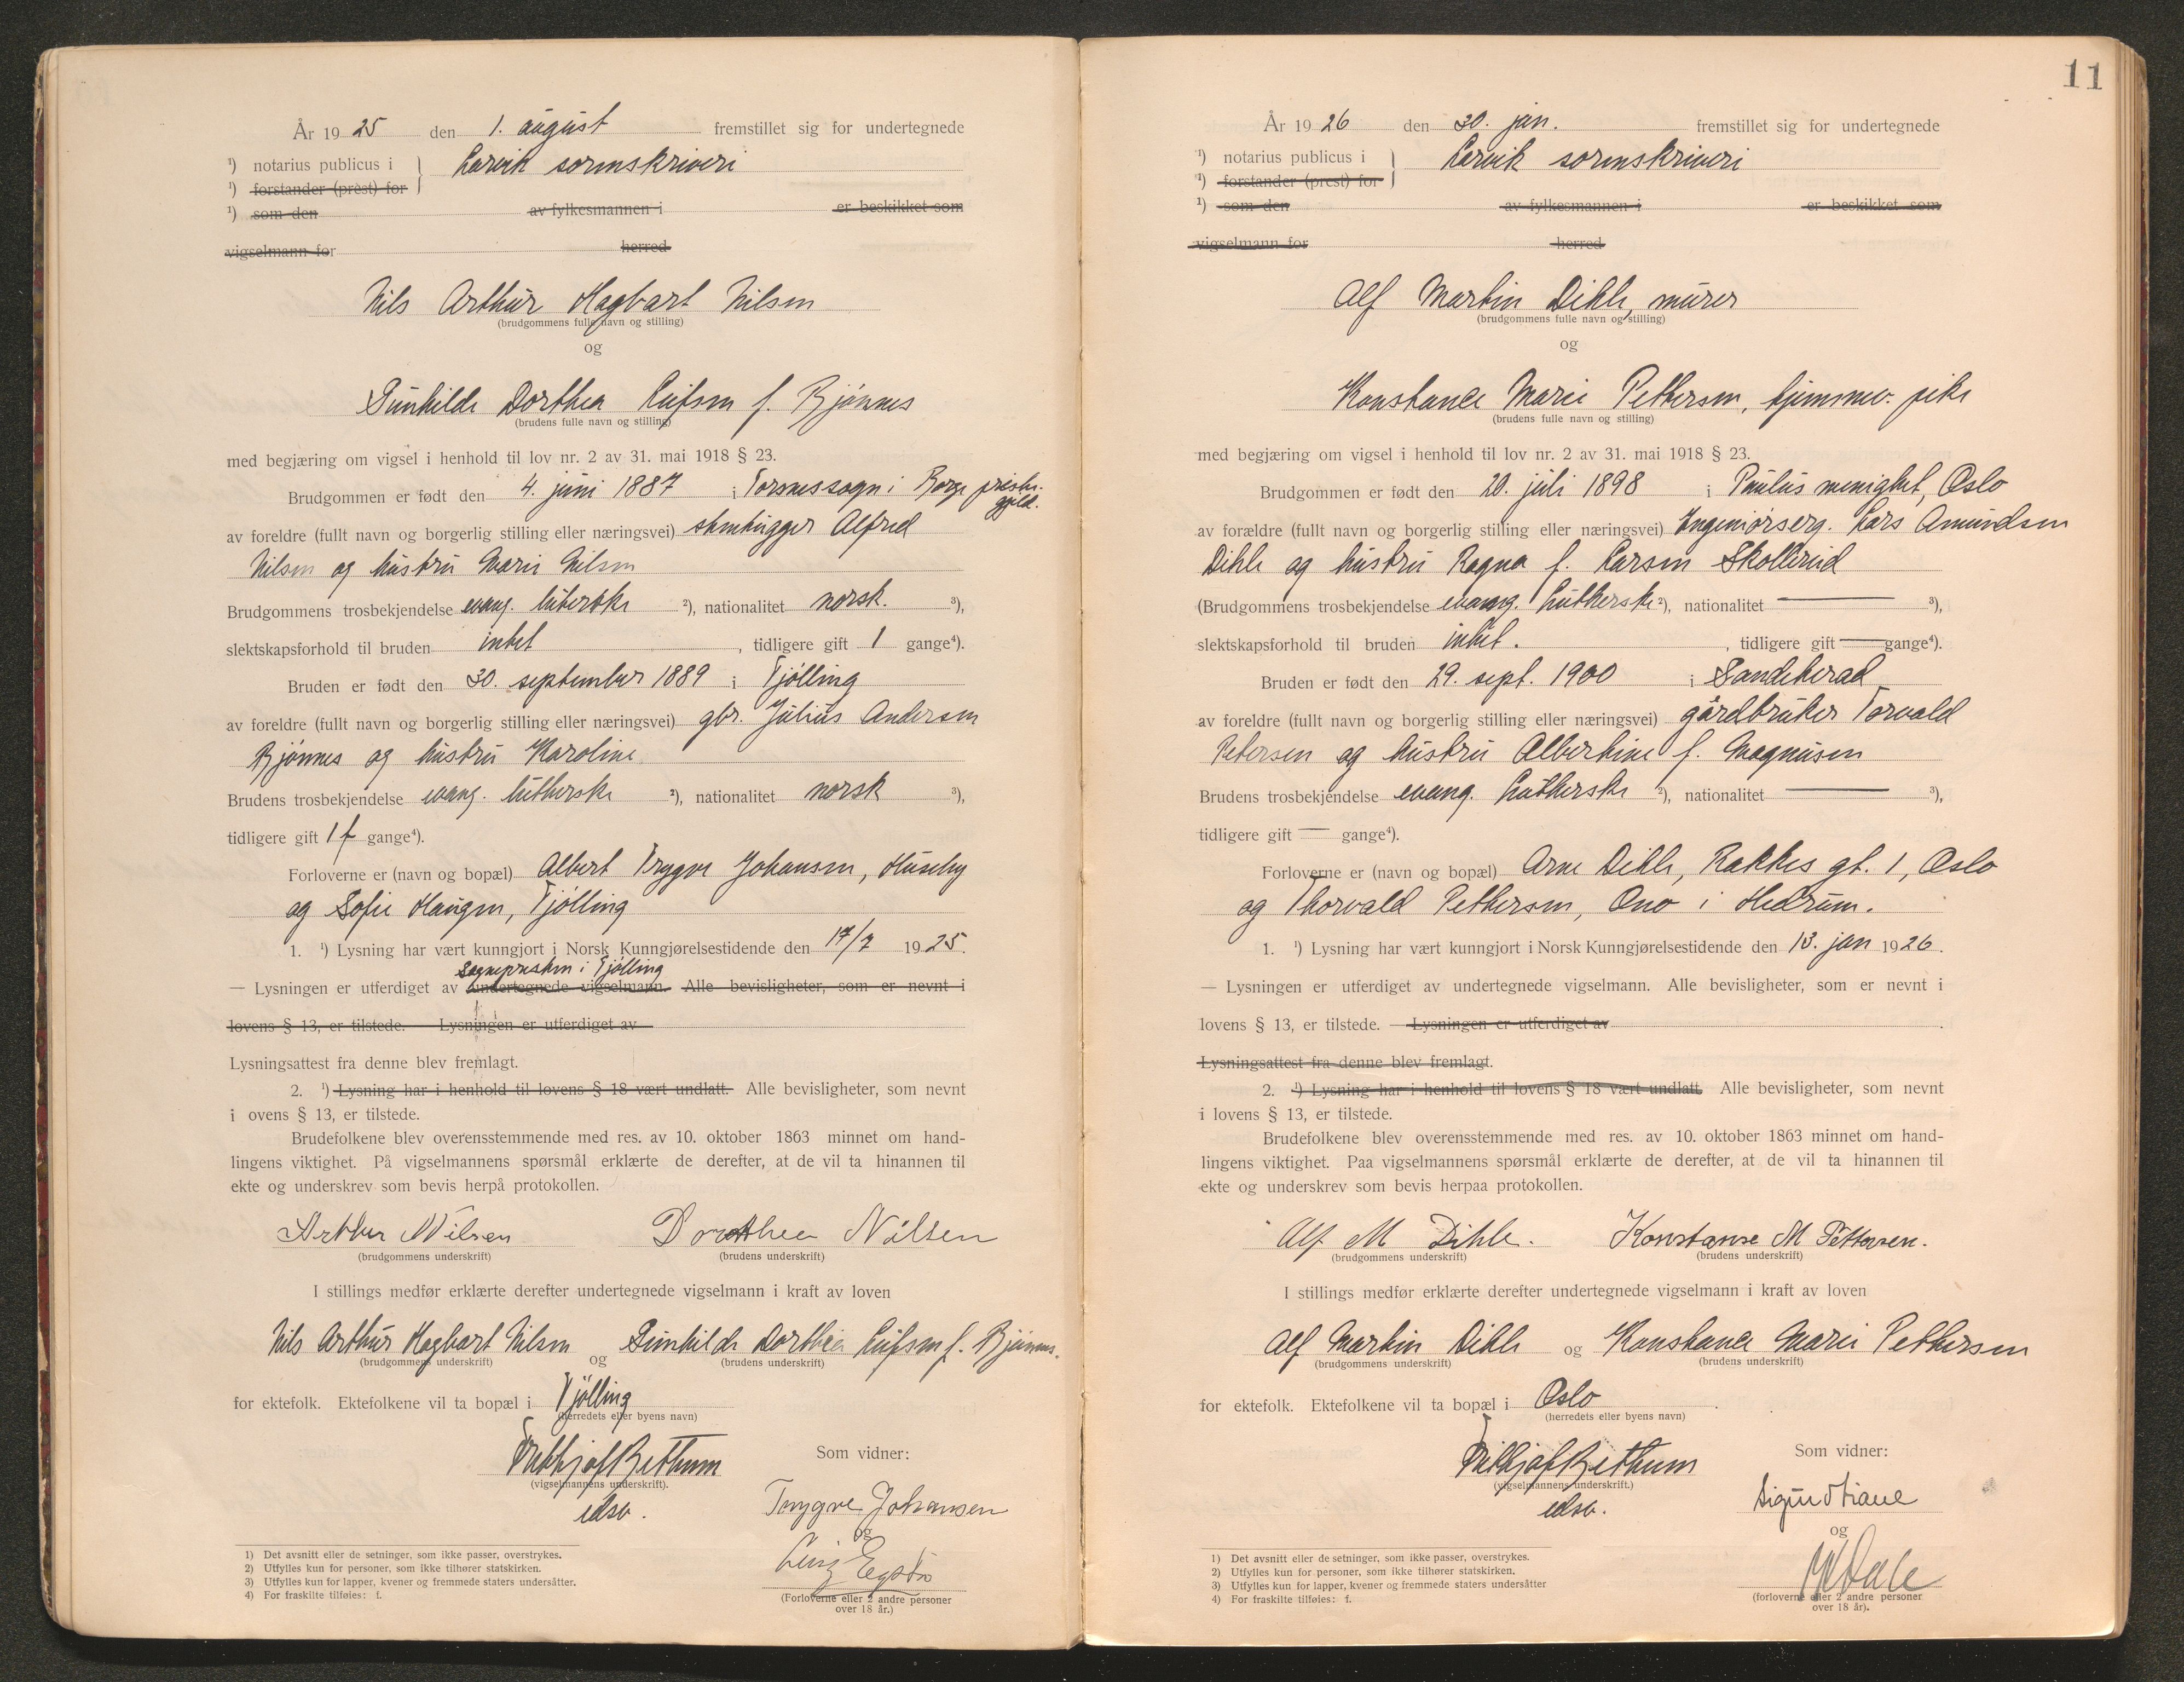 År 1925 den 1. august fremstillet sig for undertegnede
¹) notarius publicus i } Larvik sorenskriveri
¹) forstander (prest) for
¹) som den av fylkesmannen i er beskikket som
vigselmann for herred
Nils Arthur Hagbart Nilsen
(brudgommens fulle navn og stilling)
og
Gunhilde Dorthea Leifsen f. Bjønnes
(brudens fulle navn og stilling)
med begjæring om vigsel i henhold til lov nr. 2 av 31. mai 1918 § 23.
Brudgommen er født den 4. juni 1887 i Torsnes sogn i Borge preste-
gjeld.
av foreldre (fullt navn og borgerlig stilling eller næringsvei) stenhugger Alfred
Nilsen og hustru Marie Nilsen
Brudgommens trosbekjendelse evang. luterske ²), nationalitet norsk. ³),
slektskapsforhold til bruden intet , tidligere gift 1 gange⁴).
Bruden er født den 30. september 1889 i Tjølling
av foreldre (fullt navn og borgerlig stilling eller næringsvei) gbr. Julius Andersen
Bjønnes og hustru Karoline
Brudens trosbekjendelse evang. lutherske ²), nationalitet norsk ³),
tidligere gift 1 f gange⁴).
Forloverne er (navn og bopæl) Albert Trygve Johansen, Huseby
og Sofie Haugen, Tjølling
1. ¹) Lysning har vært kunngjort i Norsk Kunngjørelsestidende den 17/7 1925.
sognepresten i Tjølling
— Lysningen er utferdiget av undertegnede vigselmann. Alle bevisligheter, som er nevnt i
lovens § 13, er tilstede. — Lysningen er utferdiget av
Lysningsattest fra denne blev fremlagt.
2. ¹) Lysning har i henhold til lovens § 18 vært undlatt. Alle bevisligheter, som nevnt
i ovens § 13, er tilstede.
Brudefolkene blev overensstemmende med res. av 10. oktober 1863 minnet om hand-
lingens viktighet. På vigselmannens spørsmål erklærte de derefter, at de vil ta hinannen til
ekte og underskrev som bevis herpå protokollen.
Arthur Nilsen Dorthea Nilsen
(brudgommens underskrift) (brudens underskrift)
I stillings medfør erklærte derefter undertegnede vigselmann i kraft av loven
Nils Arthur Hagbart Nilsen og Gunhilde Dorthea Leifsen f. Bjønnes.
(brudgommens underskrift) (brudens underskrift)
for ektefolk. Ektefolkene vil ta bopæl i Tjølling
(herredets eller byens navn)
Frithjof Bettum Som vidner:
(vigselmannens underskrift).
edsv. Trygve Johansen
og
(Forloverne eller 2 andre personer
over 18 år.)
1) Det avsnitt eller de setninger, som ikke passer, overstrykes.
2) Utfylles kun for personer, som ikke tilhører statskirken.
3) Utfylles kun for lapper, kvener og fremmede staters undersåtter.
4) For fraskilte tilføies: f.
11
År 1926 den 30. jan. fremstillet sig for undertegnede
¹) notarius publicus i } Larvik sorenskriveri
¹) forstander (prest) for
¹) som den av fylkesmannen i er beskikket som
vigselmann for herred
Alf Martin Dihle, murer
(brudgommens fulle navn og stilling)
og
Konstance Marie Pettersen, hjemmev. pike
(brudens fulle navn og stilling)
med begjæring om vigsel i henhold til lov nr. 2 av 31. mai 1918 § 23.
Brudgommen er født den 20. juli 1898 i Paulus menighet, Oslo
av forældre (fullt navn og borgerlig stilling eller næringsvei) Ingeniørserg. Lars Amundsen
Dihle og hustru Ragna f. Larsen Skollerud
(Brudgommens trosbekjendelse evang. lutherske ²), nationalitet — ³),
slektskapsforhold til bruden intet. , tidligere gift — gange⁴).
Bruden er født den 29. sept. 1900 i Sandeherad
av foreldre (fullt navn og borgerlig stilling eller næringsvei) gårdbruker Torvald
Petersen og hustru Albertine f. Magnusen
Brudens trosbekjendelse evang. lutherske ²), nationalitet — ³),
tidligere gift — gange⁴).
Forloverne er (navn og bopæl) Arne Dihle, Rakkes gt. 1, Oslo
og Thorvald Pettersen, Ono i Hedrum.
1. ¹) Lysning har vært kunngjort i Norsk Kunngjørelsestidende den 13. jan 1926.
— Lysningen er utferdiget av undertegnede vigselmann. Alle bevisligheter, som er nevnt i
lovens § 13, er tilstede. — Lysningen er utferdiget av
Lysningsattest fra denne blev fremlagt.
2. ¹) Lysning har i henhold til lovens § 18 vært undlatt. Alle bevisligheter, som nevnt
i lovens § 13, er tilstede.
Brudefolkene blev overensstemmende med res. av 10. oktober 1863 minnet om hand-
lingens viktighet. Paa vigselmannens spørsmål erklærte de derefter, at de vil ta hinannen til
ekte og underskrev som bevis herpaa protokollen.
Alf M Dihle. Konstanse M Pettersen.
(brudgommens underskrift) (brudens underskrift)
I stillings medfør erklærte derefter undertegnede vigselmann i kraft av loven
Alf Martin Dihle og Konstance Marie Pettersen
(brudgommens underskrift) (brudens underskrift)
for ektefolk. Ektefolkene vil ta bopæl i Oslo
(herredets eller byens navn)
Frithjof Bettum Som vidner:
(vigselmannens underskrift.)
edsv.
og
(forloverne eller 2 andre personer
over 18 år).
1) Det avsnitt eller de setninger, som ikke passer, overstrykes.
2) Utfylles kun for personer, som ikke tilhører statskirken.
3) Utfylles kun for lapper, kvener og fremmede staters undersåtter
4) For fraskilte tilføies: f.